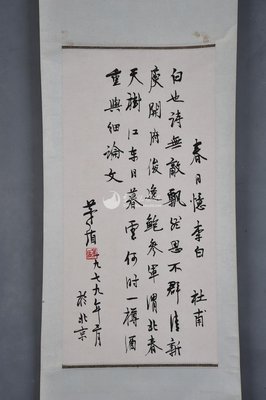 春日憶李白 杜甫
白也詩無敵飄然思不群清新
庾開府俊逸鮑參軍渭北春
天樹江東日暮雲何時一樽酒
重與細論文
茅盾
一九七九年二月
於北京